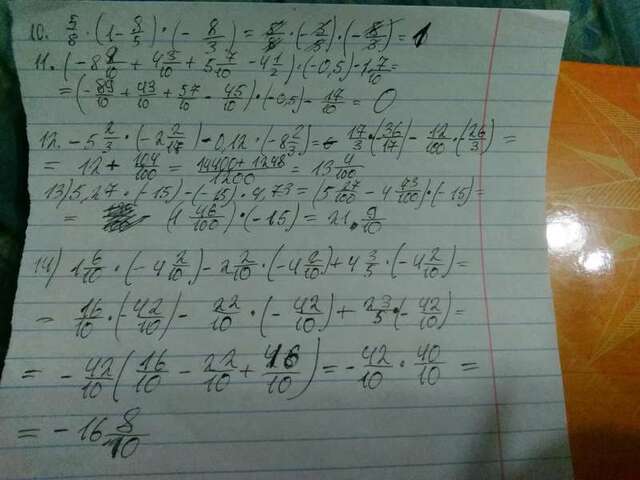 10. 5/8 · (1 - 8/5) · (- 8/3) = 5/8 · (- 3/5) · (- 8/3) = 1
11. (-8 9/10 + 4 3/10 + 5 7/10 - 4 1/2) · (-0,5) - 1 7/10 =
= (- 89/10 + 43/10 + 57/10 - 45/10) · (-0,5) - 17/10 = 0
12. - 5 2/3 · (-2 2/17) - 0,12 · (-8 2/3) = 17/3 · (36/17) - 12/100 · (26/3) =
= 12 + 104/100 = 14400 + 1248/1200 = 13 4/100
13) 5,27 · (-15) - (-15) · 4,73 = (5 27/100 - 4 73/100) · (-15) =
= (1 46/100) · (-15) = 21 9/10
14) 1 6/10 · (-4 2/10) - 2 2/10 · (-4 2/10) + 4 3/5 · (-4 2/10) =
= 16/10 · (- 42/10) - 22/10 · (- 42/10) + 23/5 · (- 42/10) =
= - 42/10 (16/10 - 22/10 + 46/10) = - 42/10 · 40/10 =
= - 16 8/10